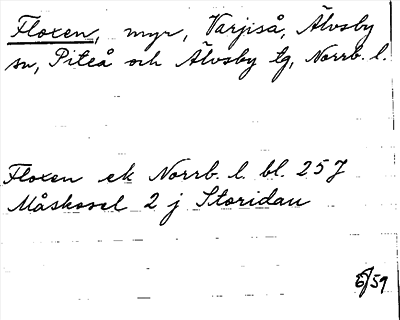 Floxen, myr, Varjiså, Älvsby
sn, Piteå och Älvsby tg, Norrb. l.
Floxen ek Norrb. l. bl. 25 J
Måskosel 2 j Storidau
6/59